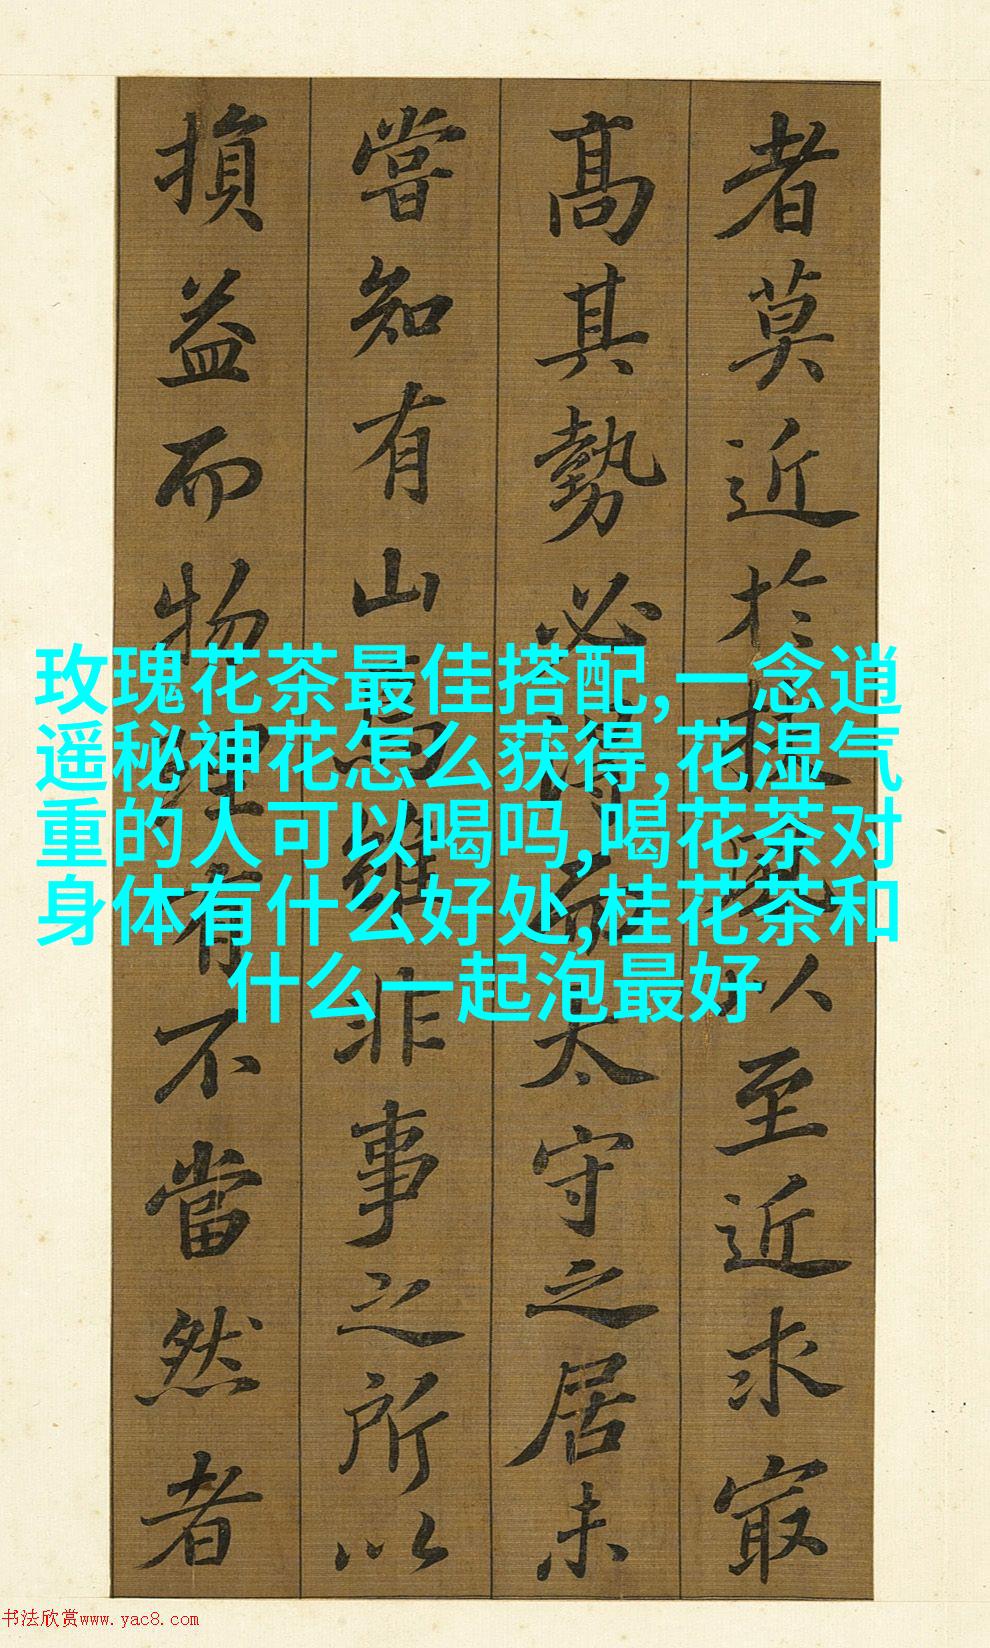 者莫近於扶風以至近求㝡
高其勢必得而太守之居未
嘗知有山焉雖非事之所以
損益而物理有不當然者
玫瑰花茶最佳搭配,一念逍
遥秘神花怎么获得,花湿气
重的人可以喝吗,喝花茶对
身体有什么好处,桂花茶和
什么一起泡最好
书法欣赏www.yac8.com